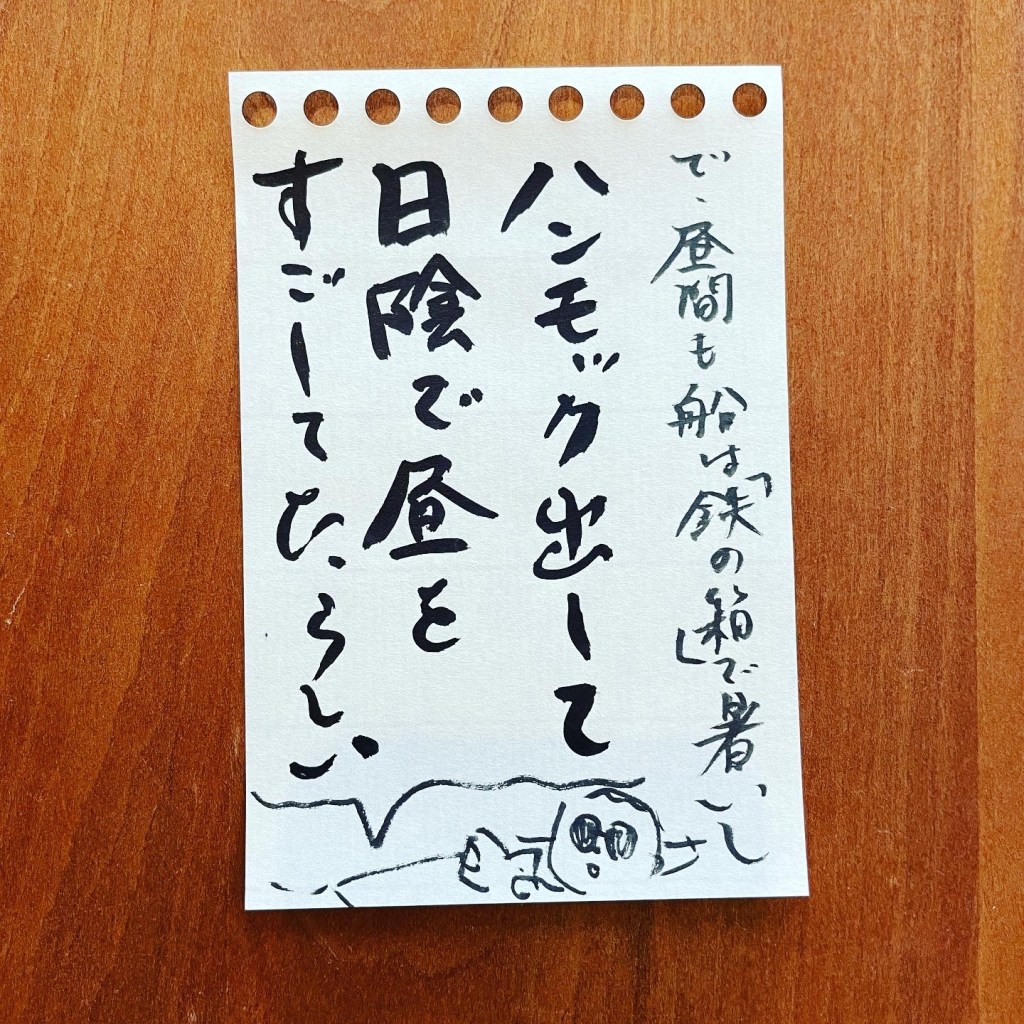 で、昼間も船は「鉄の箱」で暑いし
ハンモック出して
日陰で昼を
すごしてたらしい